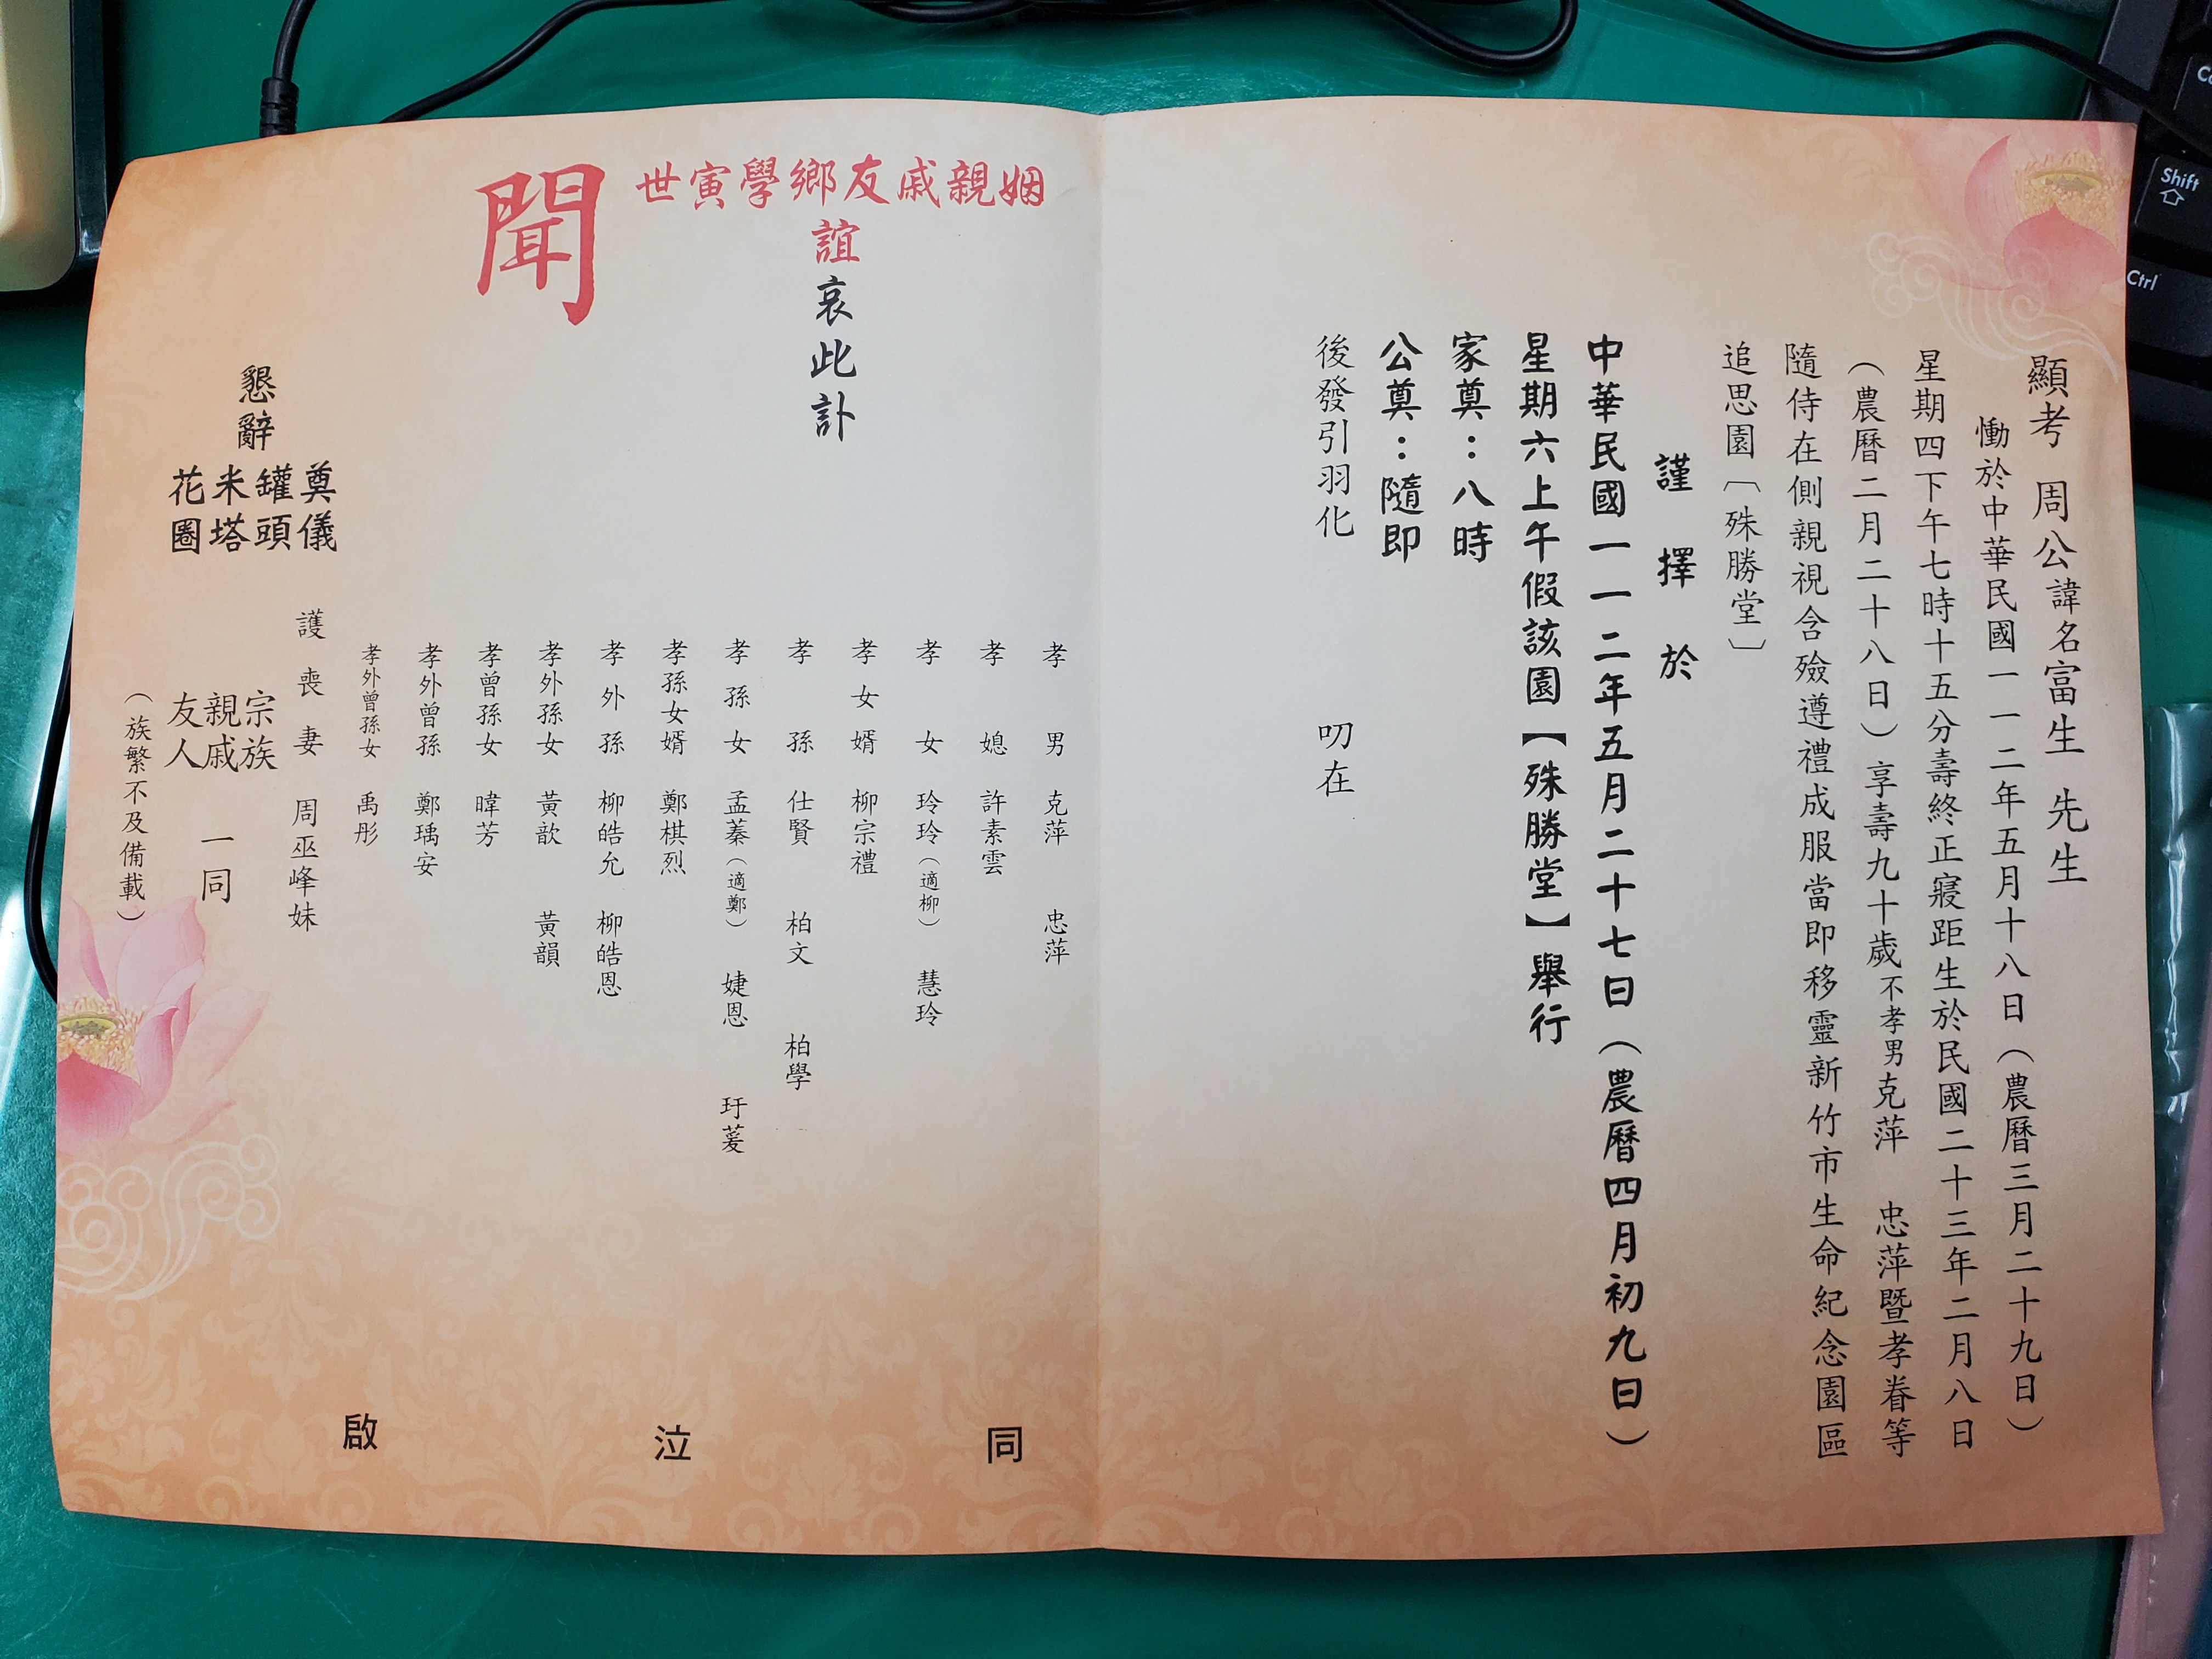 顯考 周公諱名富生 先生
慟於中華民國一一二年五月十八日（農曆三月二十九日）
星期四下午七時十五分壽終正寢距生於民國二十三年二月八日
（農曆二月二十八日）享壽九十歲不孝男克萍 忠萍暨孝眷等
隨侍在側親視含殮遵禮成服當即移靈新竹市生命紀念園區
追思園〔殊勝堂〕
謹擇於
中華民國一一二年五月二十七日（農曆四月初九日）
星期六上午假該園【殊勝堂】舉行
家奠：八時
公奠：隨即
後發引羽化
叨在
姻親戚友鄉學寅世
誼哀此訃
聞
孝男 克萍 忠萍
孝媳 許素雲
孝女 玲玲（適柳） 慧玲
孝女婿 柳宗禮
孝孫 仕賢 柏文 柏學
孝孫女 孟蓁（適鄭） 婕恩 玗萲
孝孫女婿 鄭棋烈
孝外孫 柳皓允 柳皓恩
孝外孫女 黃歆 黃韻
孝曾孫女 暐芳
孝外曾孫 鄭瑀安
孝外曾孫女 禹彤
護喪妻 周巫峰妹
宗族
親戚
友人
一同
（族繁不及備載）
懇辭
奠儀
罐頭
米塔
花圈
同泣啟
Shift
Ctrl